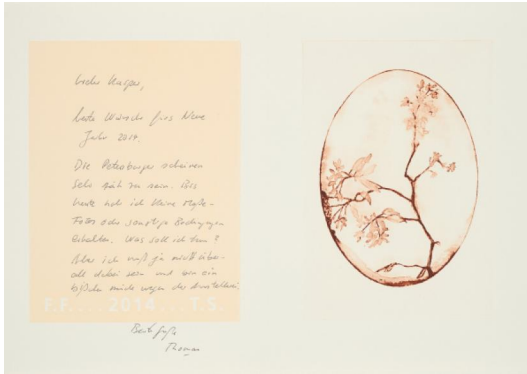 Lieber Kaspar,
beste Wünsche fürs Neue
Jahr 2014.
Die Petersburger scheinen
sehr zäh zu sein. Bis
heute hab ich keine
Fotos oder sonstige
erhalten. Was soll ich tun?
Aber ich muß ja nicht über-
all dabei sein und bin ein
bißchen müde wegen der
F.F. 2014 T.S.
Beste Grüße
Thomas